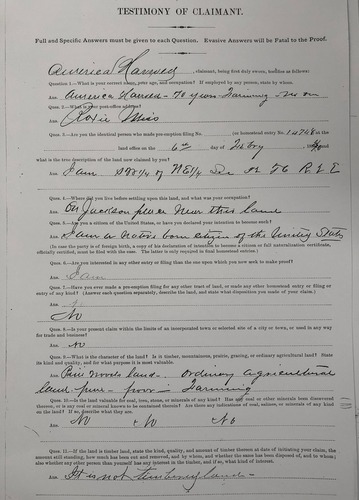 TESTIMONY OF CLAIMANT.
Full and Specific Answers must be given to each Question. Evasive Answers will be Fatal to the Proof.
America , claimant, being first duly sworn, testifies as follows:
Question 1.—What is your correct name, your age, and occupation? If employed by any person, state by whom.
Ans. America - 70 years - Farming -
Ques. 2.—What is your post-office address?
Ans. Miss
Ques. 3.—Are you the identical person who made pre-emption filing No. (or homestead entry No. 14746) in the
land office on the 6th day of Feby , and
what is the true description of the land now claimed by you?
Ans. I am of NE 1/4 Sec
Ques. 4.—Where did you live before settling upon this land, and what was your occupation?
Ans. On Jackson place near this land
Ques. 5.—Are you a citizen of the United States, or have you declared your intention to become such?
Ans. I am a native born citizen of the United States
(In case the party is of foreign birth, a copy of his declaration of intention to become a citizen or full naturalization certificate,
officially certified, must be filed with the case. The latter is only required in final homestead entries.)
Ques. 6.—Are you interested in any other entry or filing than the one upon which you now seek to make proof?
Ans.
Ques. 7.—Have you ever made a pre-emption filing for any other tract of land, or made any other homestead entry or filing or
entry of any kind? (Answer each question separately, describe the land, and state what disposition you made of your claim.)
Ans. No
No
Ques. 8.—Is your present claim within the limits of an incorporated town or selected site of a city or town, or used in any way
for trade and business?
Ans. No
Ques. 9.—What is the character of the land? Is it timber, mountainous, prairie, grazing, or ordinary agricultural land? State
its kind and quality, and for what purpose it is most valuable.
Ans. Piney woods land - Ordinary agricultural
land - pine - poor - Farming
Ques. 10.—Is the land valuable for coal, iron, stone, or minerals of any kind? Has any coal or other minerals been discovered
thereon, or is any coal or mineral known to be contained therein? Are there any indications of coal, salines, or minerals of any kind
on the land? If so, describe what they are.
Ans. No No No
Ques. 11.—If the land is timber land, state the kind, quality, and amount of timber thereon at date of initiating your claim, the
amount still standing, how much has been cut and removed, and by whom, and whether the same has been disposed of, and to whom;
also whether any other person than yourself has any interest in the timber, and if so, what kind of interest.
Ans. It is not timbery land -